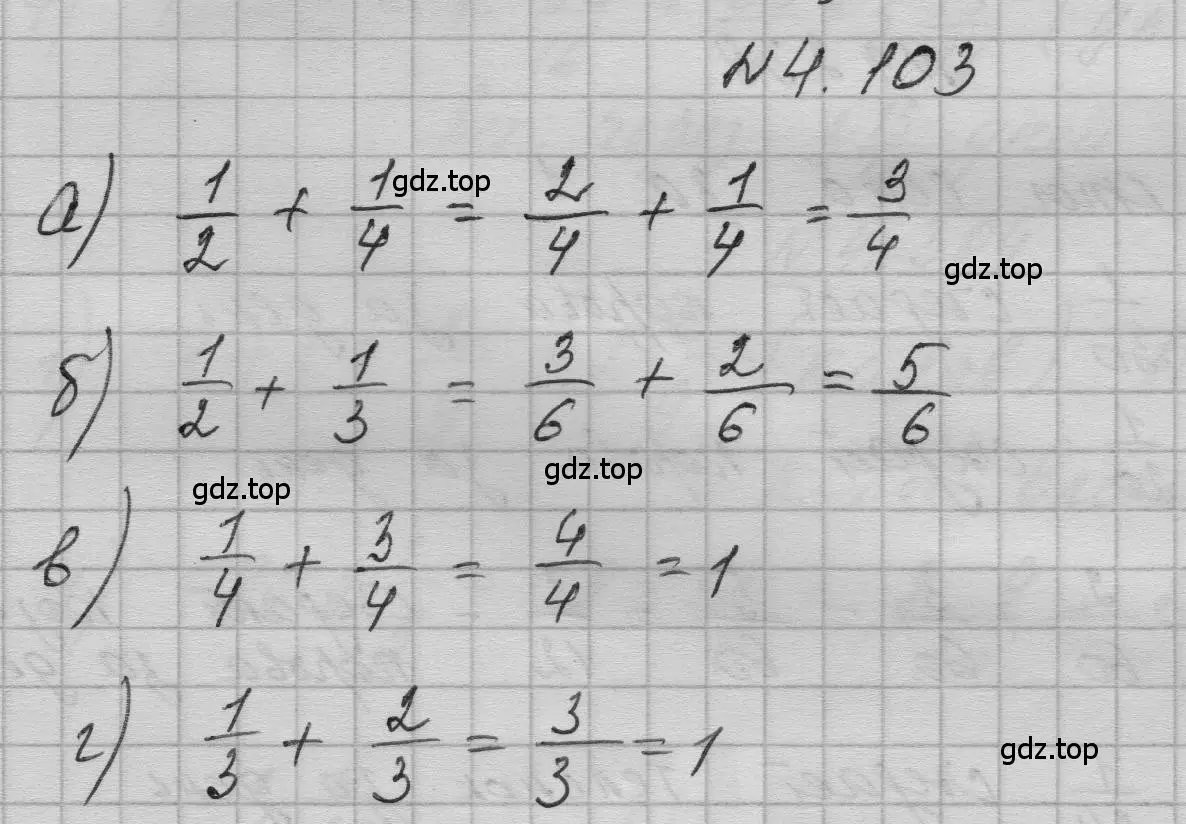 № 4.103
а) 1/2 + 1/4 = 2/4 + 1/4 = 3/4
gdz.top
gdz.top
б) 1/2 + 1/3 = 3/6 + 2/6 = 5/6
gdz.top
gdz.top
в) 1/4 + 3/4 = 4/4 = 1
г) 1/3 + 2/3 = 3/3 = 1
gdz.top